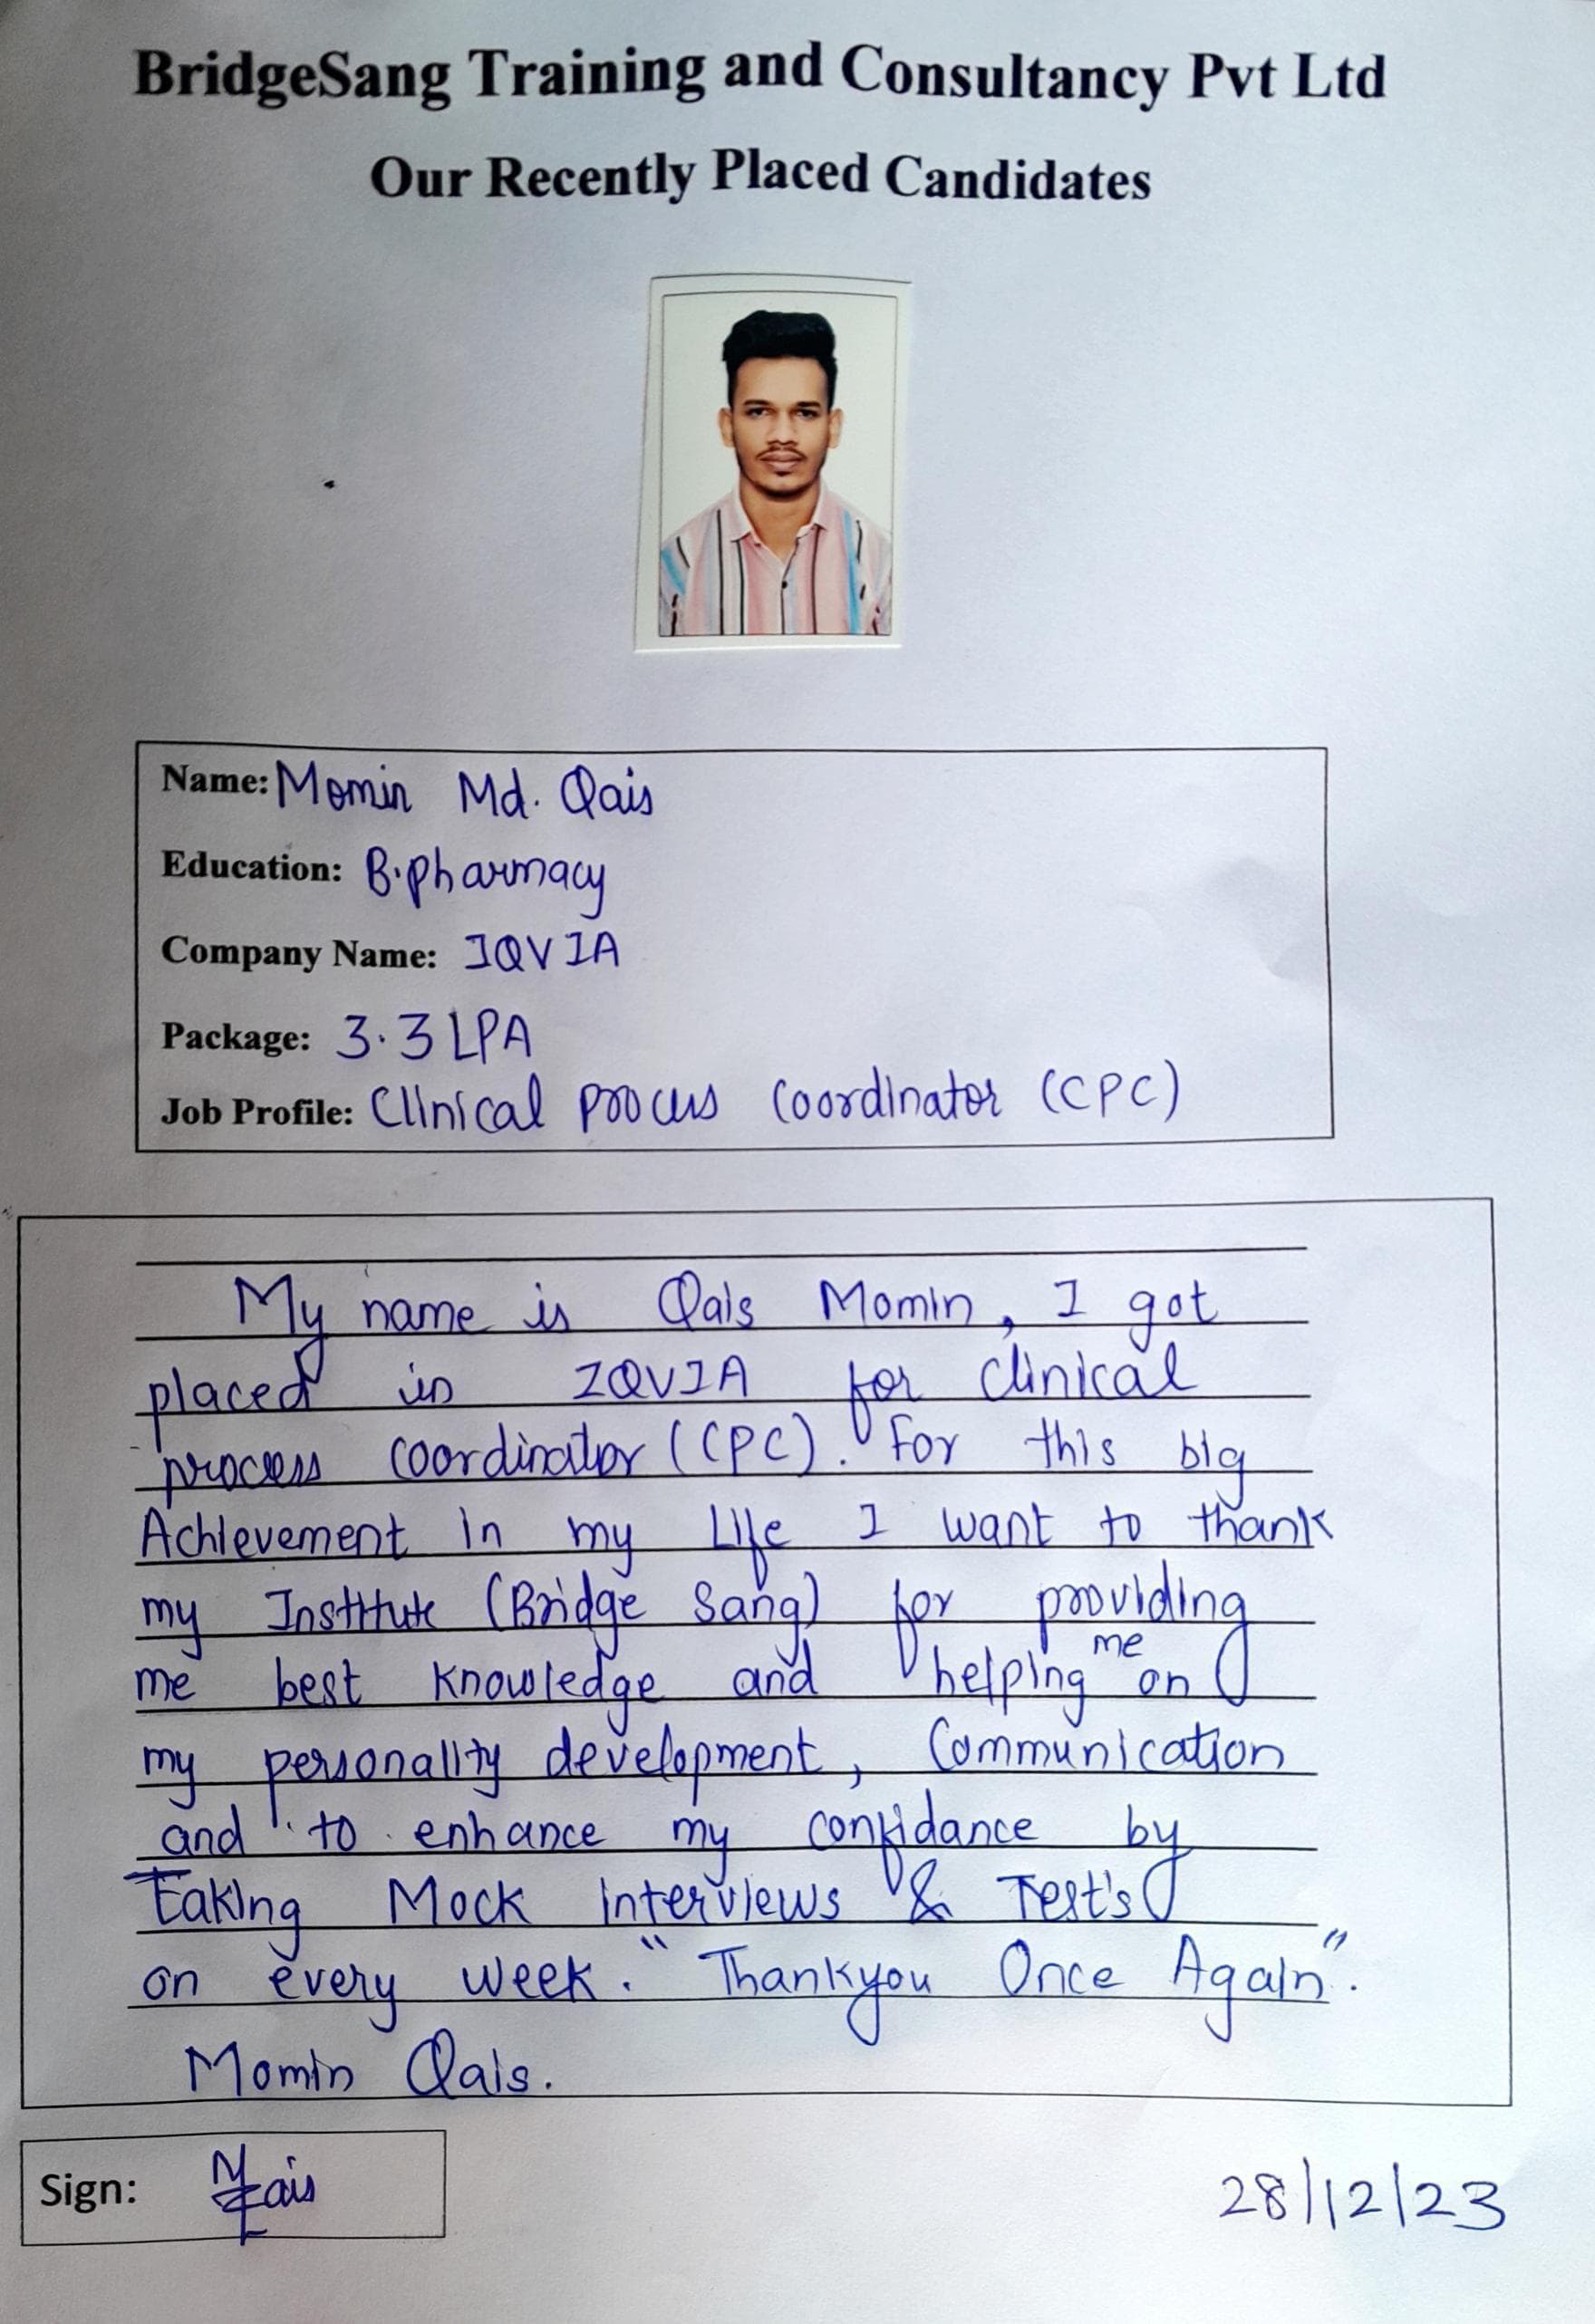 BridgeSang Training and Consultancy Pvt Ltd
Our Recently Placed Candidates
Name: Momin Md. Qais
Education: B.pharmacy
Company Name: IQVIA
Package: 3.3 LPA
Job Profile: Clinical process Coordinator (CPC)
My name is Qais Momin, I got
placed in IQVIA for clinical
process coordinator (CPC). For this big
Achievement in my Life I want to thank
my Institute (Bridge Sang) for providing
me best knowledge and helping me on
my personality development, Communication
and to enhance my confidance by
taking Mock interviews & Test's
on every week. "Thankyou Once Again".
Momin Qais.
Sign: MQais
28/12/23